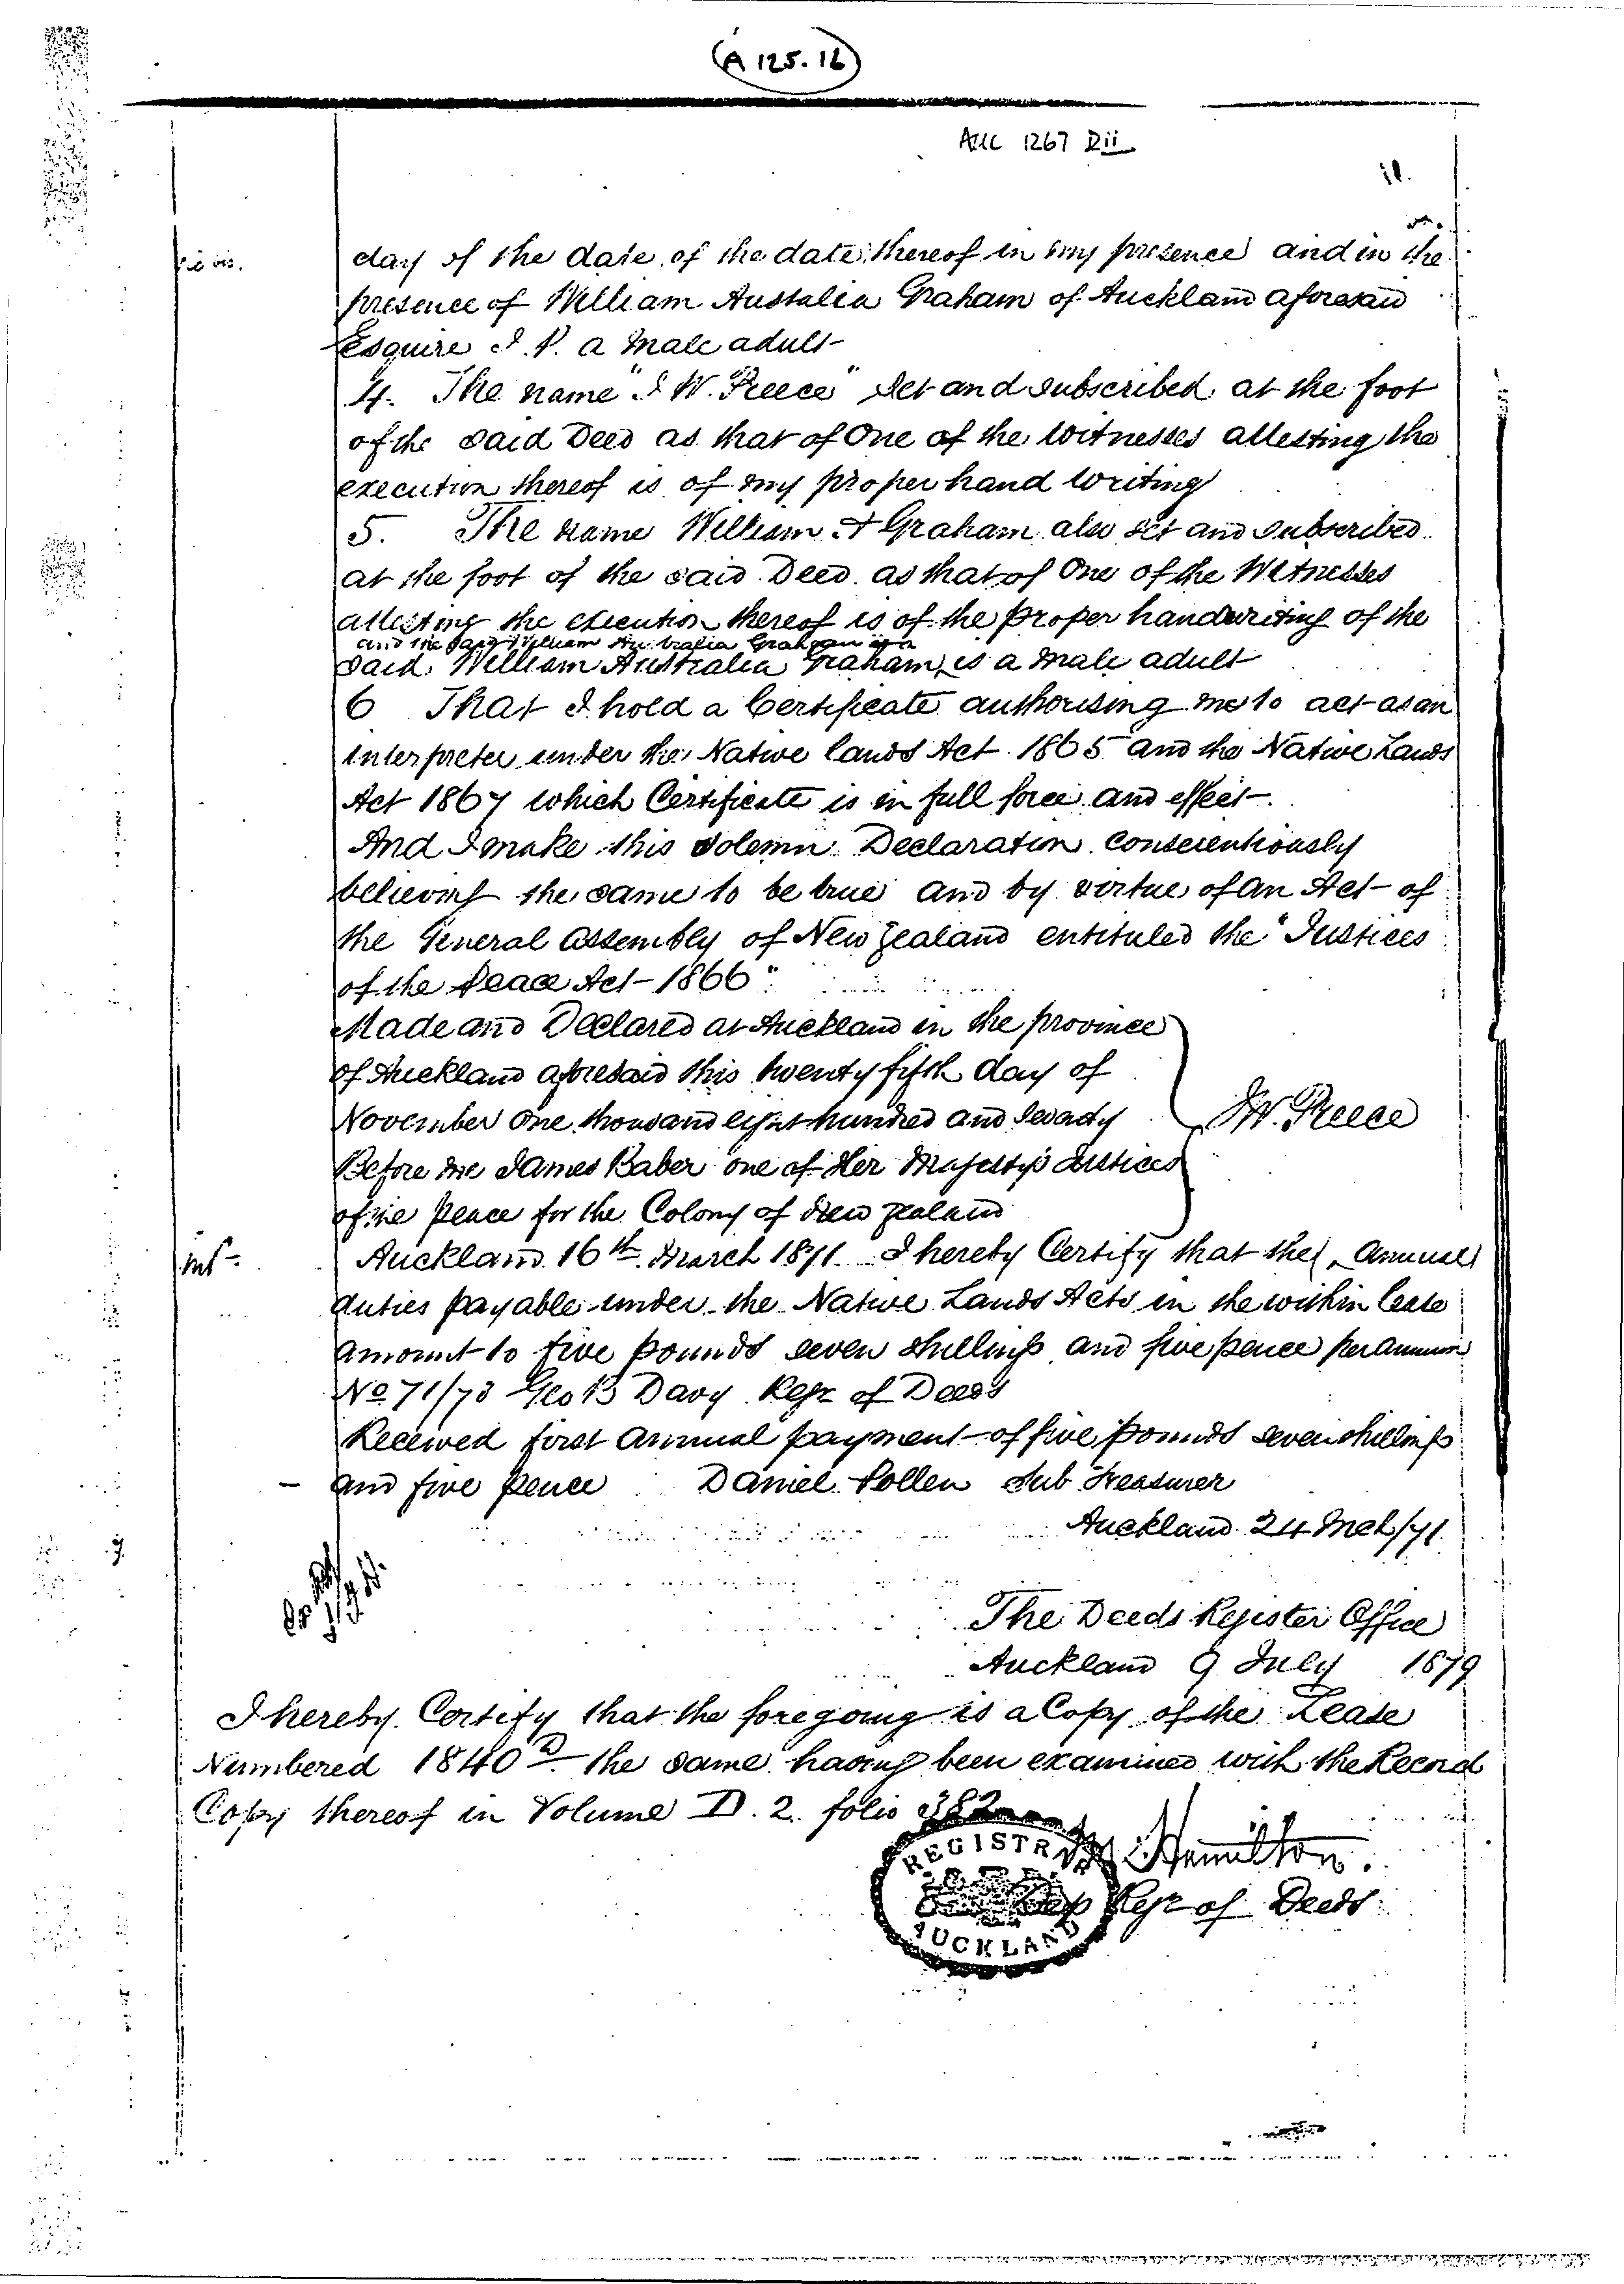 A 125.16
AUC 1267 Dii
day of the date of the date thereof in my presence and in the
presence of William Australia Graham of Auckland aforesaid
Esquire J.P. a male adult
4. The name "J W. Preece" set and subscribed at the foot
of the said Deed as that of One of the Witnesses attesting the
execution thereof is of my proper hand writing
5. The name William A Graham also set and subscribed
at the foot of the said Deed as that of One of the Witnesses
attesting the execution thereof is of the proper handwriting of the
and the said William Australia Graham is a
said William Australia Graham is a male adult
6 That I hold a Certificate authorising me to act as an
interpreter under the Native lands Act 1865 and the Native Lands
Act 1867 which Certificate is in full force and effect.
And I make this solemn Declaration conscientiously
believing the same to be true and by virtue of an Act of
the General Assembly of New Zealand entituled the "Justices
of the Peace Act 1866"
Made and Declared at Auckland in the province
of Auckland aforesaid this twenty fifth day of
November One thousand eight hundred and seventy
J W. Preece
Before me James Baber one of Her Majesty's Justices
of the Peace for the Colony of New Zealand
Auckland 16th March 1871. I hereby Certify that the annual
duties payable under the Native Lands Acts in the within lease
amount to five pounds seven shillings and five pence per annum
No 71/73 Geo B Davy Regr of Deeds
Received first annual payment of five pounds seven shillings
and five pence Daniel Pollen Sub Treasurer
Auckland 24 Mch/71.
The Deeds Register Office
Auckland 9 July 1879
I hereby Certify that the foregoing is a Copy of the Lease
Numbered 1840D the same having been examined with the Record
Copy thereof in Volume D. 2. folio 382
REGISTRAR
Hamilton.
Dep Regr of Deeds
AUCKLAND